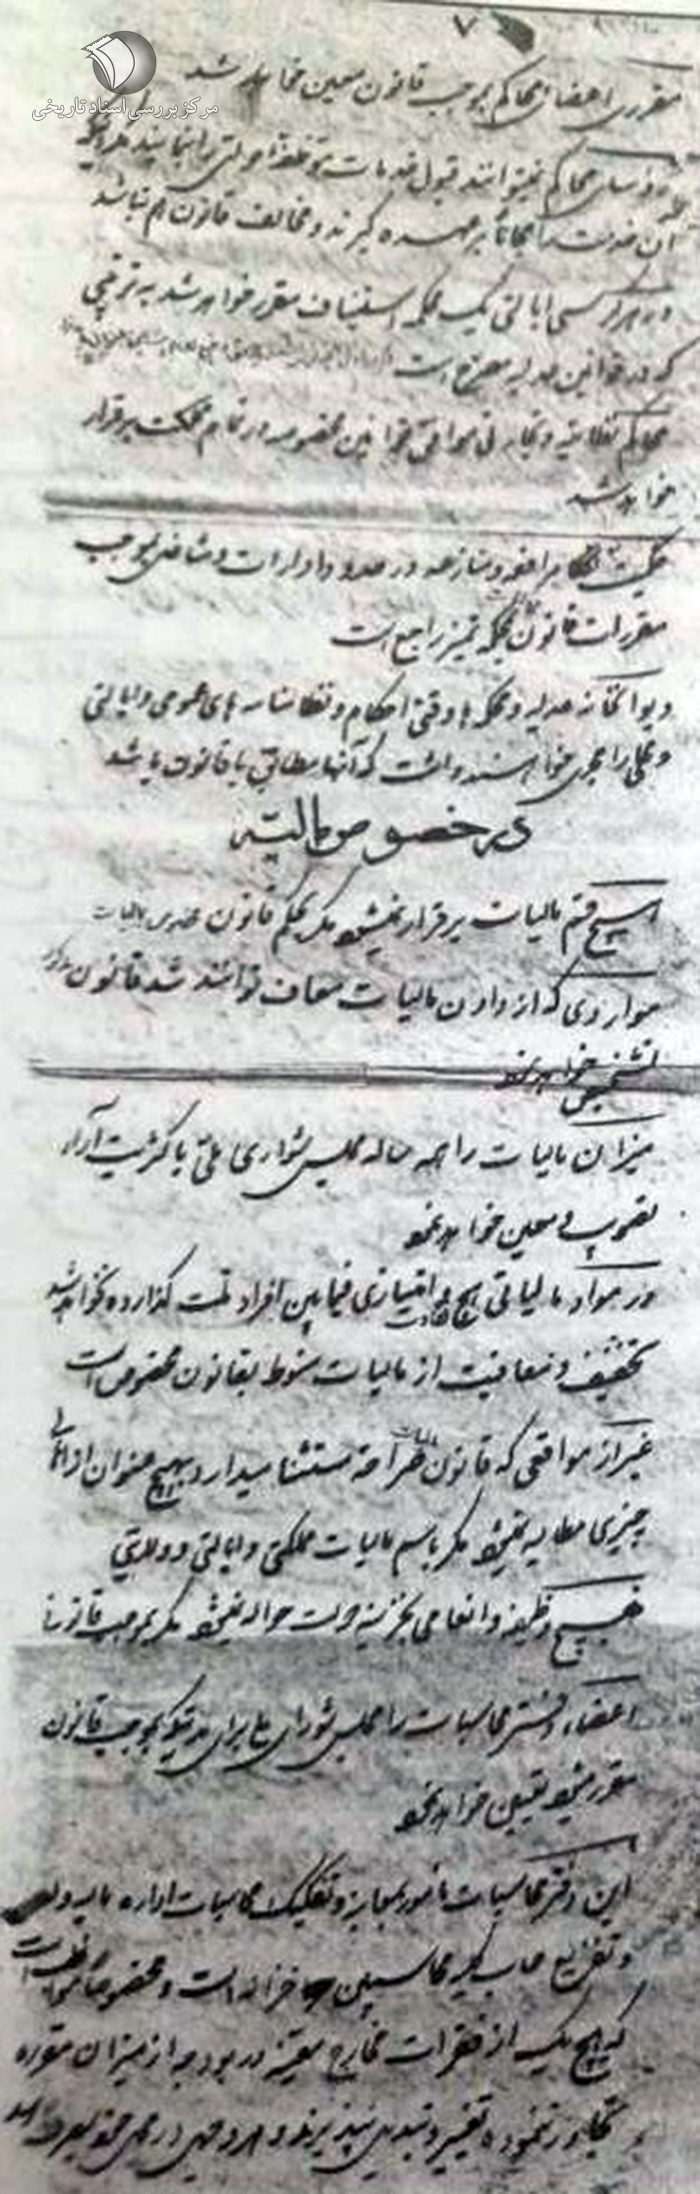 ۷
مرکز بررسی اسناد تاریخی
مقرری اعضای محاکم بموجب قانون معین خواهد شد
رؤسای محاکم نمیتوانند قبول خدمات موظفه دولتی را بنمایند مگر اینکه
آن خدمت را مجاناً بر عهده گیرند و مخالف قانون هم نباشد
در هر کرسی ایالتی یک محکمه استیناف مقرر خواهد شد به ترتیبی
که در قوانین عدلیه مصرح است
محاکم نظامیه و تجارتی موافق قوانین مخصوصه در تمام مملکت برقرار
خواهد شد
حکمیت هنگام مرافعه و منازعه در حدود ادارات و مشاغل بموجب
مقررات قانون بمحکمه تمیز راجع است
دیوانخانه عدلیه و محکمه‌ها وقتی احکام و نظامنامه‌های عمومی و ایالتی
و بلدی را مجری خواهند داشت که آنها مطابق با قانون باشد
در خصوص مالیه
هیچ قسم مالیات برقرار نمیشود مگر بحکم قانون
مواردی که از دادن مالیات معاف توانند شد قانون
تشخیص خواهد نمود
میزان مالیات را همه ساله مجلس شورای ملی باکثریت آراء
تصویب و معین خواهد نمود
در مواد مالیاتی هیچ تفاوت و امتیازی فیمابین افراد ملت گذارده نخواهد شد
تخفیف و معافیت از مالیات منوط بقانون مخصوص است
غیر از مواقعی که قانون صراحةً مستثنا میدارد بهیچ عنوان از اهالی
چیزی مطالبه نمیشود مگر باسم مالیات مملکتی و ایالتی و ولایتی
هیچ وظیفه و انعامی بخزینه دولت حواله نمیشود مگر بموجب قانون
اعضاء دفتر محاسبات را مجلس شورای ملی برای مدتیکه بموجب قانون
مقرر میشود تعیین خواهد نمود
این دفتر محاسبات مأمور بمعاینه و تفکیک محاسبات اداره مالیه
و تفریغ حساب کلیه محاسبین خزانه است و مخصوصاً مواظب است
که هیچ یک از فقرات مخارج معینه در بودجه از میزان مقرره
تجاوز ننموده تغییر و تبدیل نپذیرد و هر وجهی در محل خود بصرف